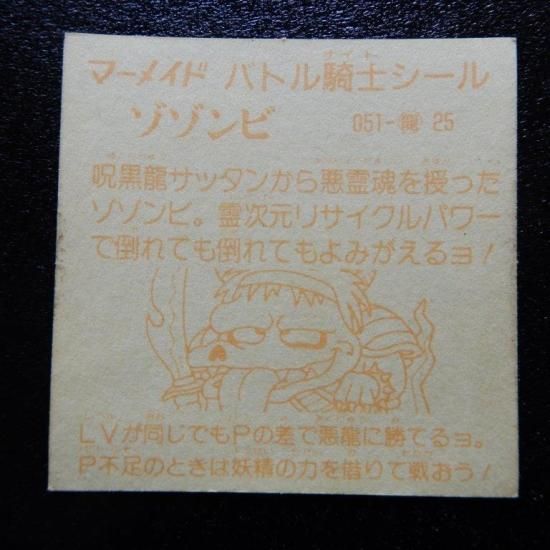 マーメイド バトル騎士シール
ゾゾンビ 051-龍 25
呪黒龍サッタンから悪霊魂を授った
ゾゾンビ。霊次元リサイクルパワー
で倒れても倒れてもよみがえるヨ!
LVが同じでもPの差で悪龍に勝てるヨ。
P不足のときは妖精の力を借りて戦おう!